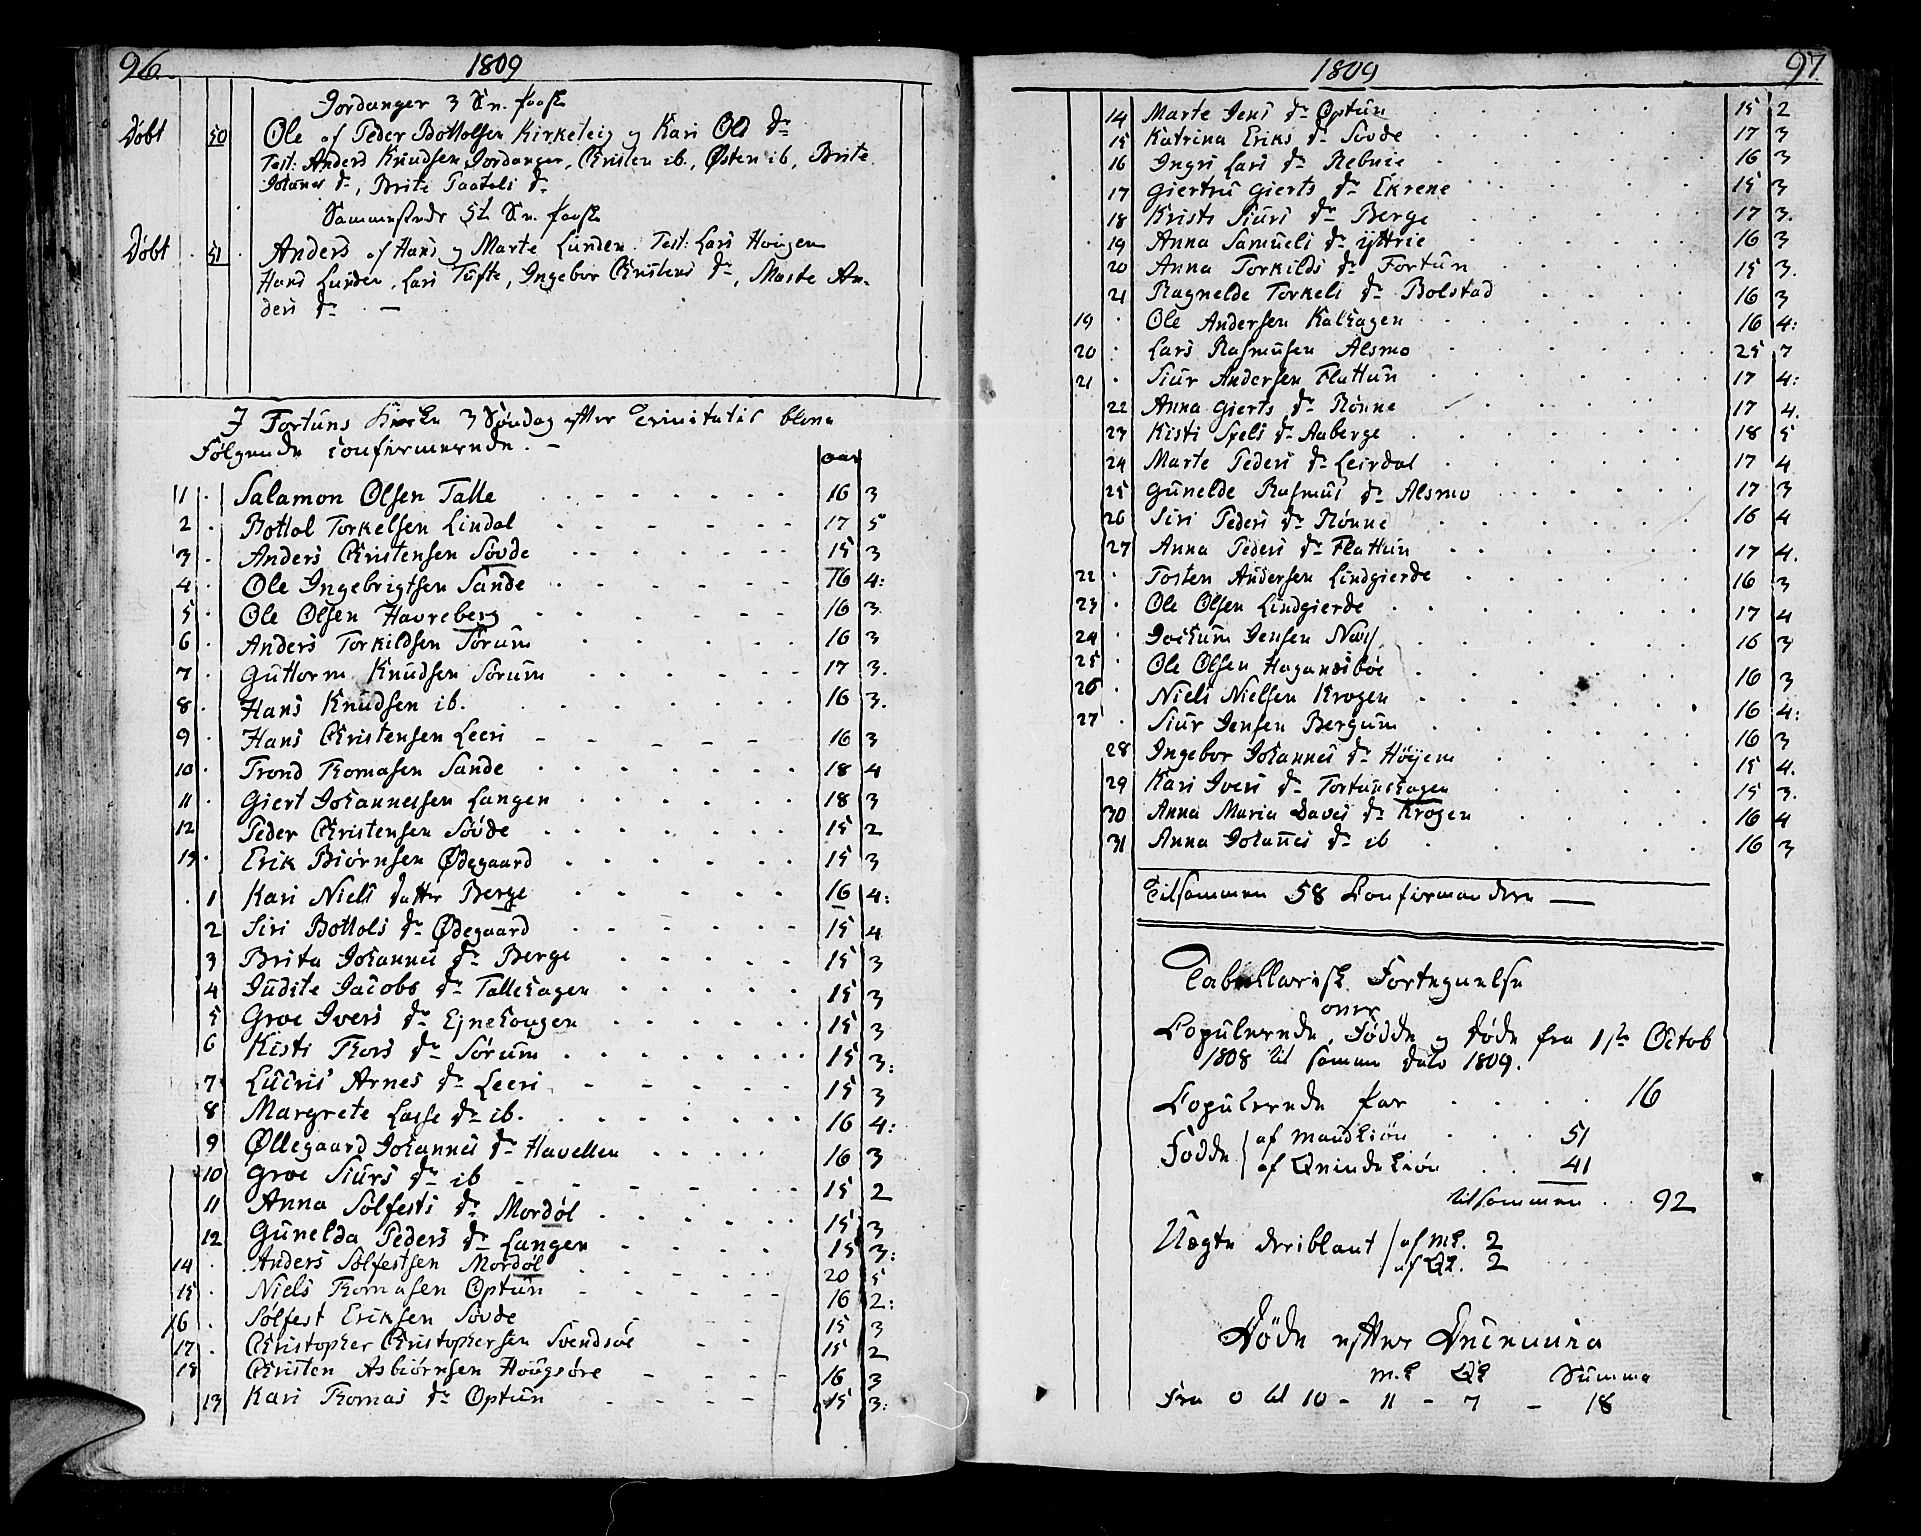 96
1809
Jordanger 3 Sn. Paask
Døbt 50 Ole af Peder Bottolsen Kirketeig og Kari Ols dr
Test: Anders Knudsen Jordanger, Christen ib., Østen ib, Brite
Johanes dr, Brite Taatels dr
Sammesteds 5te Sn. Paask
Døbt 51 Anders af Hans og Marte Lunden Test: Lars Hougen
Hans Lunden, Lars Tufte, Ingebor Christens dr, Marte An-
ders dr
I Fortuns Kirke 3 Søndag efter Trinitatis bleve
Følgende confirmerede.
aar
1 Salamon Olsen Talle 16 3
2 Bottol Torkelsen Lindal 17 5
3 Anders Christensen Søvde 15 3
4 Ole Ingebrigtsen Sande 16 4:
5 Ole Olsen Havreberg 16 3
6 Anders Torkildsen Sørum 16 3
7 Guttorm Knudsen Sørum 17 3.
8 Hans Knudsen ib. 16 3.
9 Hans Christensen Leeri 16 3
10 Trond Thomasen Sande 18 4
11 Giert Johannessen Langen 18 3
12 Peder Christensen Søvde 15 2
13 Erik Biørnsen Ødegaard 15 3
1 Kari Niels datter Berge 16 4:
2 Siri Bottols dr Ødegaard 15 4
3 Brita Johannes dr Berge 15 3
4 Judite Jacobs dr Tallehagen 15 3
5 Groe Ivers dr Ejnehougen 15 3
6 Kisti Thors dr Sørum 15 3:
7 Lucris Arnes dr Leeri 15 3
8 Margrete Lasse dr ib. 16 4:
9 Øllegaard Johannes dr Havellen 16 3
10 Groe Siurs dr ib 15 2
11 Anna Sølfests dr Mordøl 15 3
12 Gunelda Peders dr Langen 15 3:
14 Anders Sølfestsen Mordøl 20 5
15 Niels Thomasen Optun 16 2:
16 Sølfest Eriksen Søvde 15 3
17 Christopher Christophersen Svendsøe 15 2
18 Christen Asbiørnsen Hougsøre 16 3
13 Kari Thomas dr Optun 15 3:
1809
97
14 Marte Jens dr Optun 15 2
15 Katrina Eriks dr Søvde 17 3
16 Ingri Lars dr Rebnie 16 3
17 Giertru Gierts dr Ekrene 15 3
18 Kristi Siurs dr Berge 17 3.
19 Anna Samuels dr Yttrie 16 3
20 Anna Torkilds dr Fortun 15 3.
21 Ragnelde Torkels dr Bolstad 16 3
19 Ole Andersen Kalhagen 16 4:
20 Lars Rasmusen Alsmo 25 7
21 Siur Andersen Flattun 17 4:
22 Anna Gierts dr Rønne 17 4.
23 Kisti Spels dr Aaberge 18 5
24 Marte Peders dr Leirdal 17 4
25 Gunelde Rasmus dr Alsmo 17 3
26 Siri Peders dr Rønne 16 4
27 Anna Peders dr Flattun 17 4.
22 Tosten Andersen Lindgierde 16 3
23 Ole Olsen Lindgierde 17 4
24 Jochum Jensen Næs 16 3
25 Ole Olsen Haganesbøe 16 3
26 Niels Nielsen Krogen 16 4:
27 Siur Jensen Bergum 16 3
28 Ingebor Johannes dr Høyem 15 4.
29 Kari Ivers dr Fortunshagen 15 3.
30 Anna Maria Daves dr Krogen 16 4
31 Anna Johannes dr ib 16 3
Tilsammen 58 Confirmandere
Tabellarisk Fortegnelse
over
Copulerede, Fødde og døde fra 1ste Octob
1808 til samme dato 1809.
Copulerede par 16
Fødde af Mandkiøn 51
af Qvindekiøn 41
tilsammen 92
Uægte deriblant af Mk. 2
af Qk. 2
Døde efter Decennia
M.k Qk Summa
Fra 0 til 10 - 11 - 7 - 18